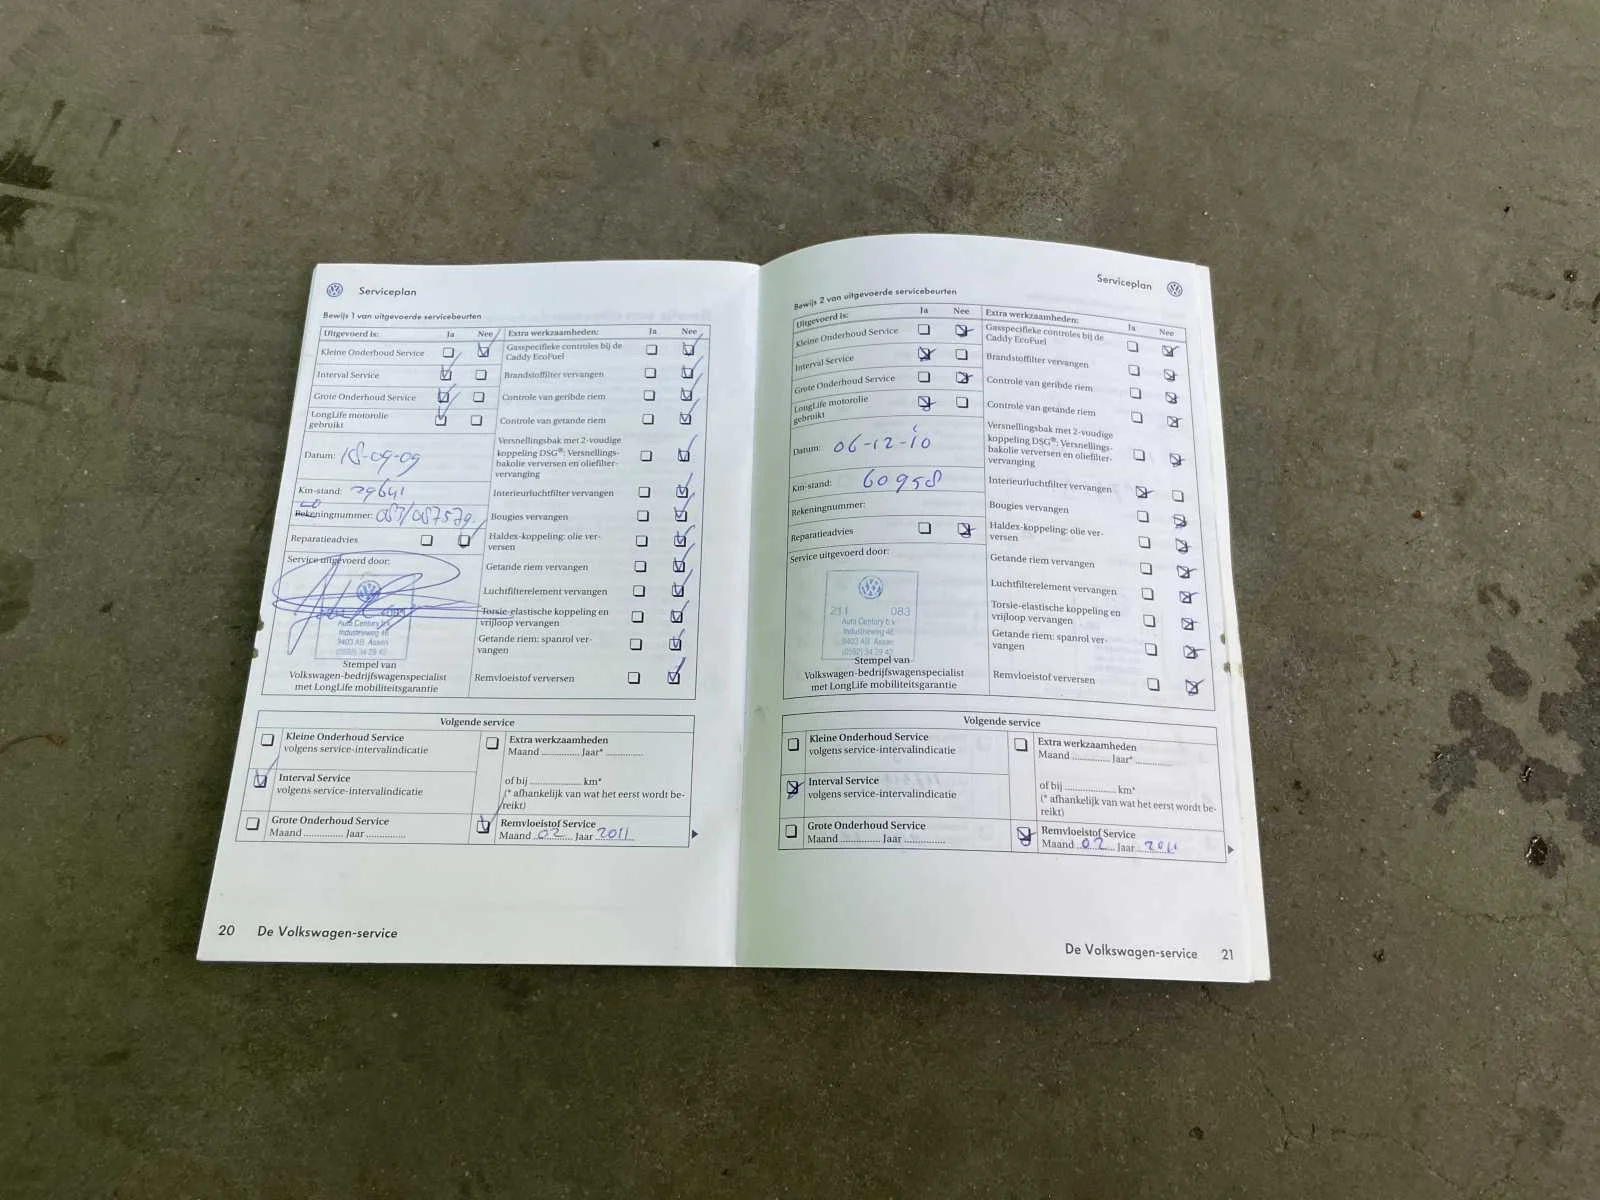 Serviceplan
Bewijs 1 van uitgevoerde servicebeurten
Uitgevoerd is: Ja Nee
Kleine Onderhoud Service
Interval Service
Grote Onderhoud Service
LongLife motorolie
gebruikt
Datum: 18-09-09
Km-stand: 29641
Rekeningnummer: 083/087579
Reparatieadvies
Service uitgevoerd door:
Auto Century b.v.
Industrieweg 46
9403 AB Assen
(0592) 34 29 42
Stempel van
Volkswagen-bedrijfswagenspecialist
met LongLife mobiliteitsgarantie
Extra werkzaamheden: Ja Nee
Gasspecifieke controles bij de
Caddy EcoFuel
Brandstoffilter vervangen
Controle van geribde riem
Controle van getande riem
Versnellingsbak met 2-voudige
koppeling DSG®: Versnellings-
bakolie verversen en oliefilter-
vervanging
Interieurluchtfilter vervangen
Bougies vervangen
Haldex-koppeling: olie ver-
versen
Getande riem vervangen
Luchtfilterelement vervangen
Torsie-elastische koppeling en
vrijloop vervangen
Getande riem: spanrol ver-
vangen
Remvloeistof verversen
Volgende service
Kleine Onderhoud Service
volgens service-intervalindicatie
Interval Service
volgens service-intervalindicatie
Grote Onderhoud Service
Maand ............. Jaar .............
Extra werkzaamheden
Maand ............. Jaar* .............
of bij ................. km*
(* afhankelijk van wat het eerst wordt be-
reikt)
Remvloeistof Service
Maand 02 Jaar 2011
20 De Volkswagen-service
Serviceplan
Bewijs 2 van uitgevoerde servicebeurten
Uitgevoerd is: Ja Nee
Kleine Onderhoud Service
Interval Service
Grote Onderhoud Service
LongLife motorolie
gebruikt
Datum: 06-12-10
Km-stand: 60958
Rekeningnummer:
Reparatieadvies
Service uitgevoerd door:
211 083
Auto Century b.v.
Industrieweg 46
9403 AB Assen
(0592) 34 29 42
Stempel van
Volkswagen-bedrijfswagenspecialist
met LongLife mobiliteitsgarantie
Extra werkzaamheden: Ja Nee
Gasspecifieke controles bij de
Caddy EcoFuel
Brandstoffilter vervangen
Controle van geribde riem
Controle van getande riem
Versnellingsbak met 2-voudige
koppeling DSG®: Versnellings-
bakolie verversen en oliefilter-
vervanging
Interieurluchtfilter vervangen
Bougies vervangen
Haldex-koppeling: olie ver-
versen
Getande riem vervangen
Luchtfilterelement vervangen
Torsie-elastische koppeling en
vrijloop vervangen
Getande riem: spanrol ver-
vangen
Remvloeistof verversen
Volgende service
Kleine Onderhoud Service
volgens service-intervalindicatie
Interval Service
volgens service-intervalindicatie
Grote Onderhoud Service
Maand ............. Jaar .............
Extra werkzaamheden
Maand ............. Jaar* .............
of bij ................. km*
(* afhankelijk van wat het eerst wordt be-
reikt)
Remvloeistof Service
Maand 02 Jaar 2011
De Volkswagen-service 21